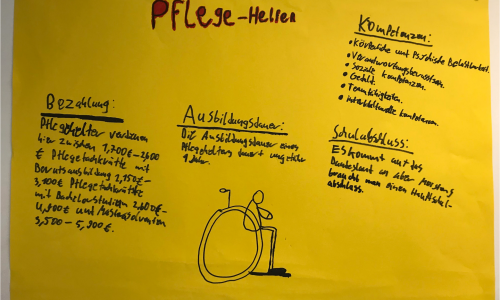 Pflege-Helfer
Kompetenzen:
• Körperliche und Psychische Belastbarkeit.
• Verantwortungsbewusstsein.
• Soziale Kompetenzen.
• Geduld.
• Teamfähigkeiten.
• interkulturelle kompetenzen.
Bezahlung:
Pflegehelfer verdienen
hier zwischen 1,700€-2,600
€ Pflegefachkräfte mit
Berufsausbildung 2,150€-
3,100€ Pflegefachkräfte
mit Bachelorstudium
und
3,500-5,300€.
Ausbildungsdauer:
Die Ausbildungsdauer eines
Pflegehelfers dauert ungefähr
1 Jahr.
Schulabschluss:
Es kommt auf das
Bundesland an aber
braucht man einen Hauptschul-
abschluss.